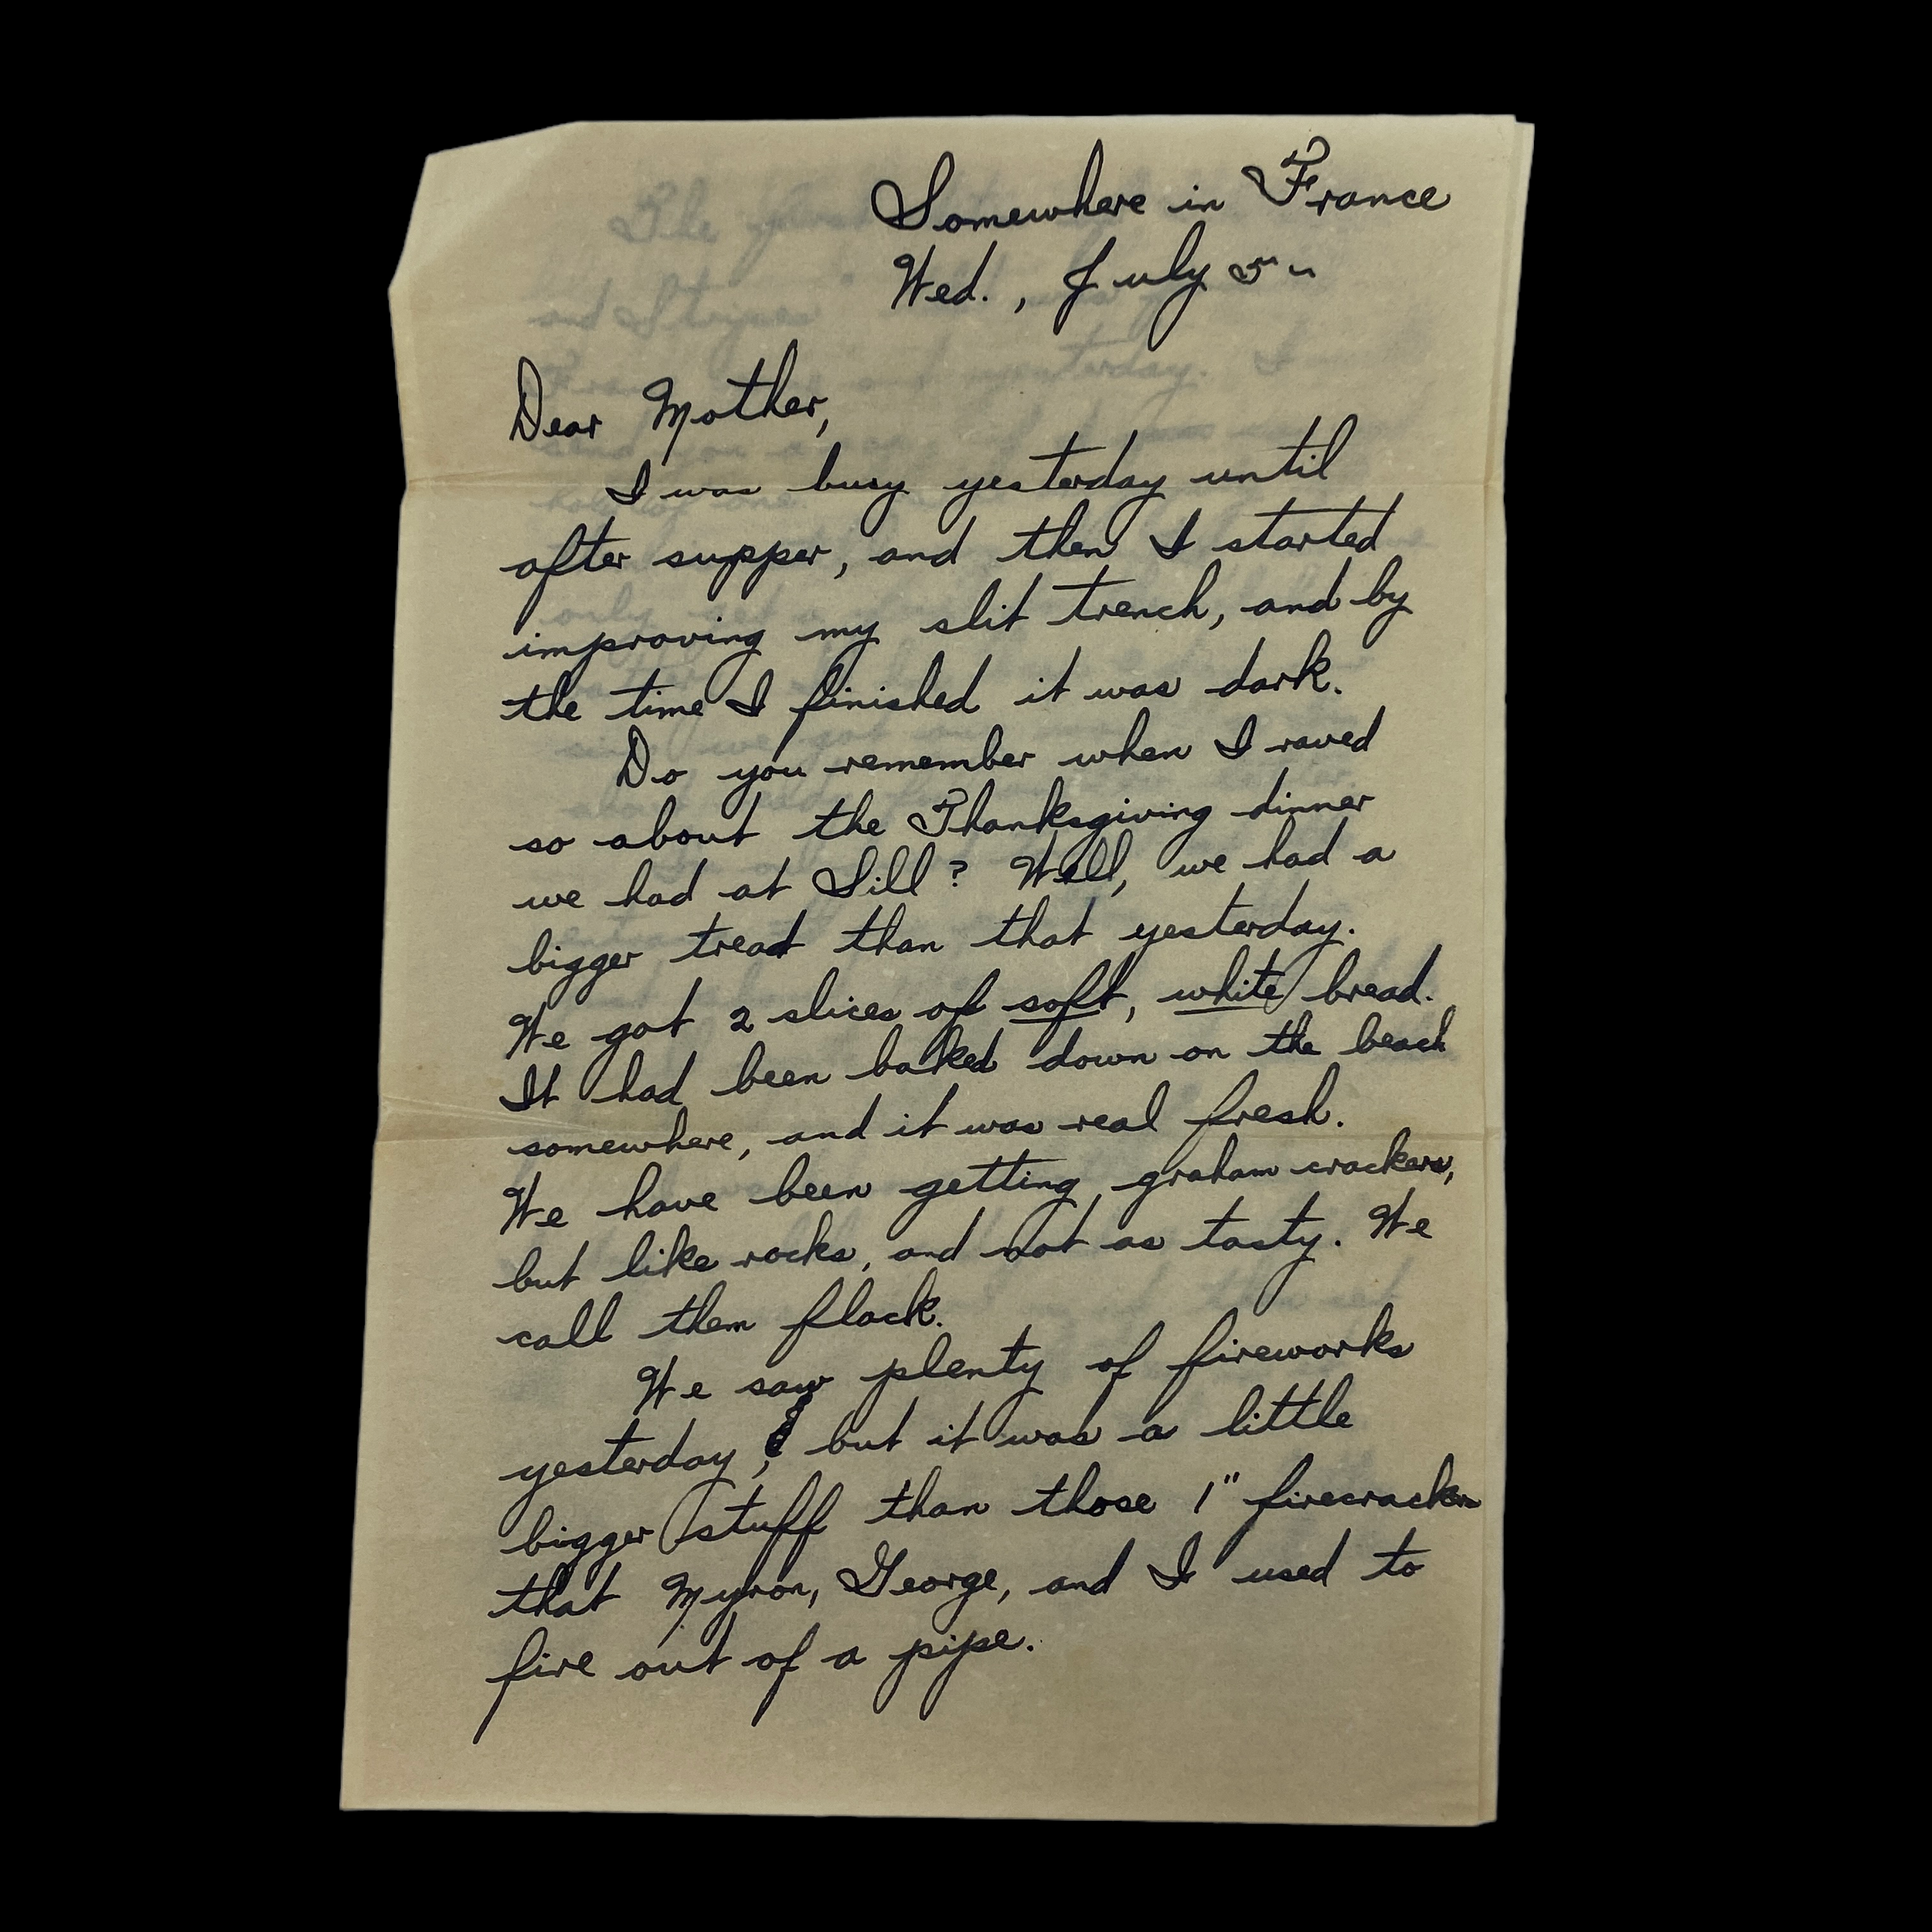 Somewhere in France
Wed., July 5
Dear Mother,
I was busy yesterday until
after supper, and then I started
improving my slit trench, and by
the time I finished it was dark.
Do you remember when I raved
so about the Thanksgiving dinner
we had at Sill? Well, we had a
bigger treat than that yesterday.
We got 2 slices of soft, white bread.
It had been baked down on the beach
somewhere, and it was real fresh.
We have been getting graham crackers,
but like rocks, and not as tasty. We
call them flack.
We saw plenty of fireworks
yesterday, but it was a little
bigger stuff than those 1" firecrackers
that Myron, George, and I used to
fire out of a pipe.